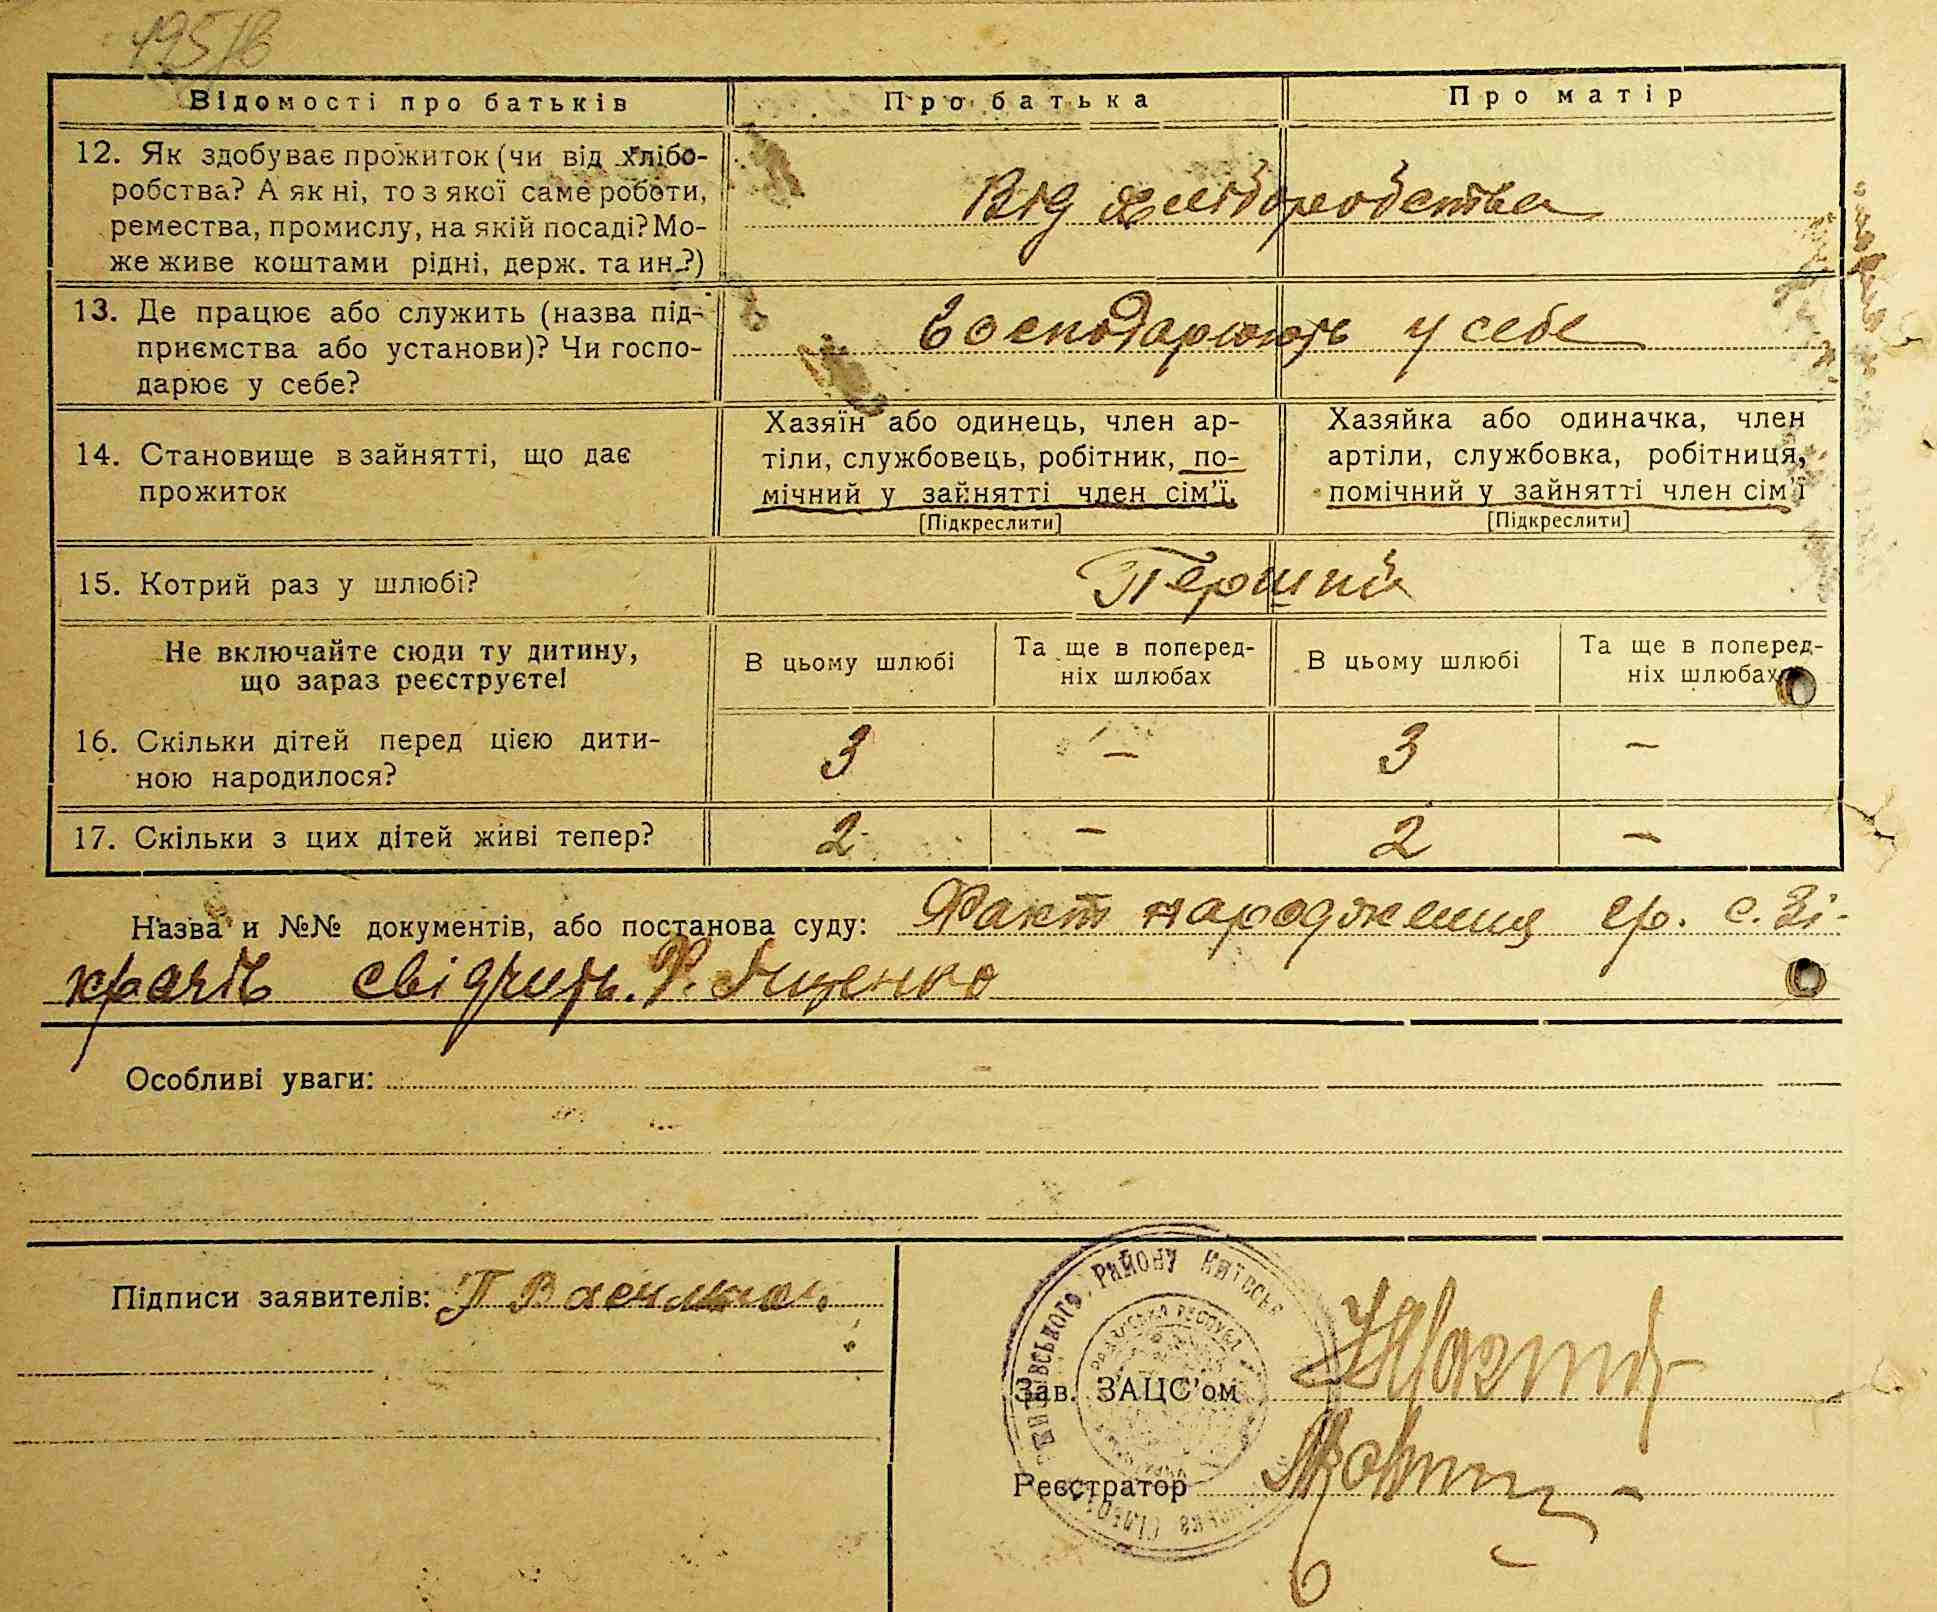 Відомості про батьків
Про батька
Про матір
12. Як здобуває прожиток (чи від хлібо-
робства? А як ні, то з якої саме роботи,
ремества, промислу, на якій посаді? Мо-
же живе коштами рідні, держ. та ин.?)
Від хліборобства
13. Де працює або служить (назва під-
приємства або установи)? Чи госпо-
дарює у себе?
Господарюють у себе
14. Становище в зайнятті, що дає
прожиток
Хазяїн або одинець, член ар-
тіли, службовець, робітник, по-
мічний у зайнятті член сім'ї.
[Підкреслити]
Хазяйка або одиначка, член
артіли, службовка, робітниця,
помічний у зайнятті член сім'ї
[Підкреслити]
15. Котрий раз у шлюбі?
Перший
Не включайте сюди ту дитину,
що зараз реєструєте!
В цьому шлюбі
Та ще в поперед-
ніх шлюбах
В цьому шлюбі
Та ще в поперед-
ніх шлюбах
16. Скільки дітей перед цією дити-
ною народилося?
3 — 3 —
17. Скільки з цих дітей живі тепер?
2 — 2 —
Назва и №№ документів, або постанова суду: Факт народження гр. с. Зі-
крачів свідчить. Яценко
Особливі уваги:
Підписи заявителів: П
РАЙОНУ
Зав. ЗАЦС'ом
Реєстратор